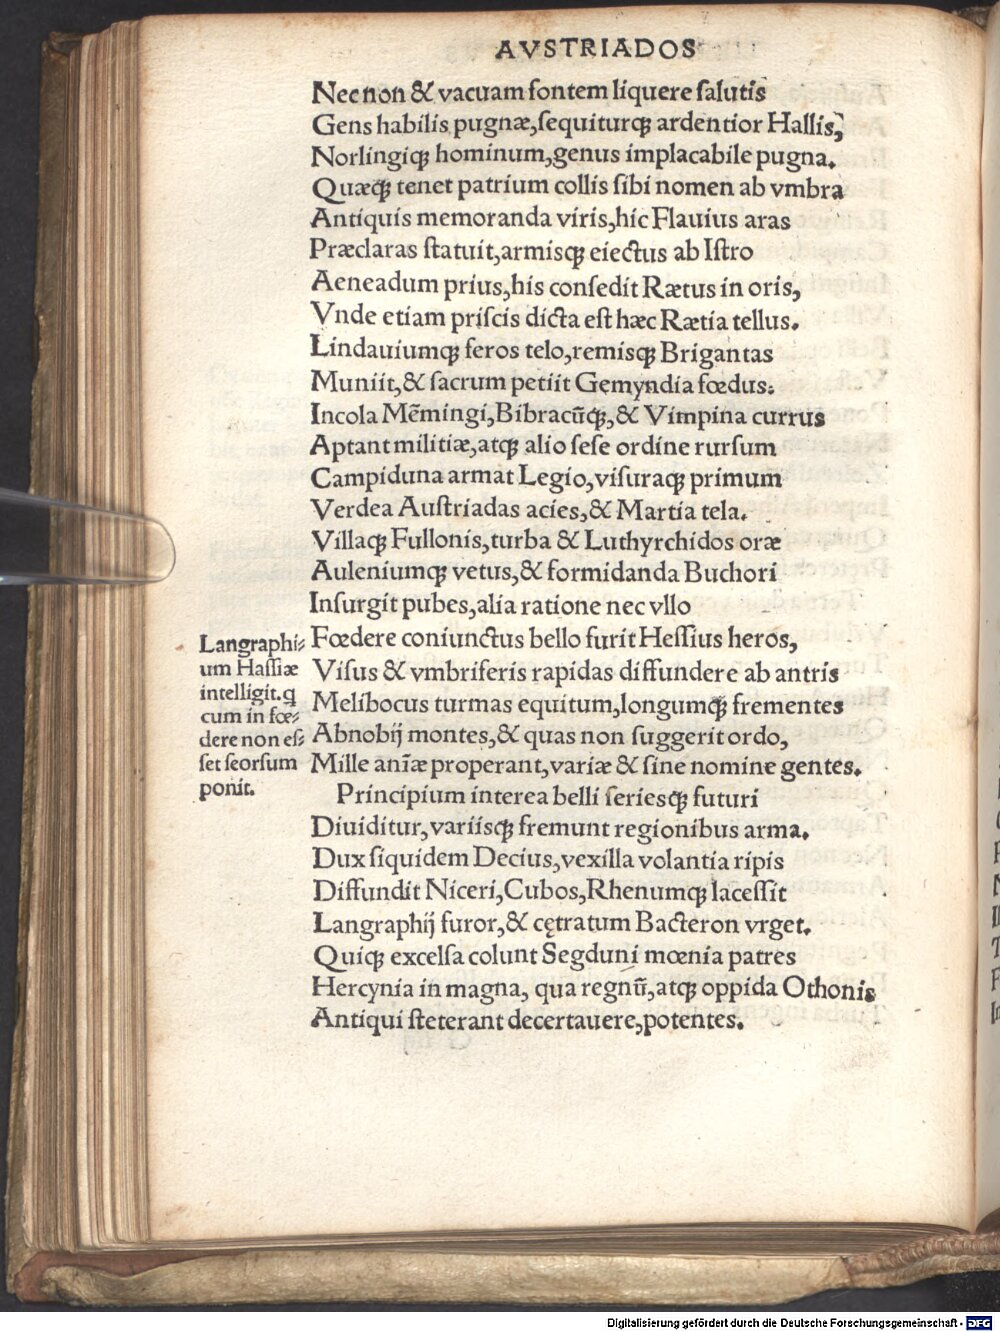 AVSTRIADOS
Necnon & vacuam fontem liquere salutis
Gens habilis pugnæ, sequiturqꝫ ardentior Hallis,
Norlingiqꝫ hominum, genus implacabile pugna.
Quæcqꝫ tenet patrium collis sibi nomen ab vmbra
Antiquis memoranda viris, hic Flauius aras
Præclaras statuit, armisqꝫ eiectus ab Istro
Aeneadum prius, his consedit Rætus in oris,
Vnde etiam priscis dicta est hæc Rætia tellus.
Lindauiumqꝫ feros telo, remisqꝫ Brigantas
Muniit, & sacrum petiit Gemyndia fœdus.
Incola Mēmingi, Bibracūqꝫ, & Vimpina currus
Aptant militiæ, atqꝫ alio sese ordine rursum
Campiduna armat Legio, visuraqꝫ primum
Verdea Austriadas acies, & Martia tela.
Villaqꝫ Fullonis, turba & Luthyrchidos oræ
Auleniumqꝫ vetus, & formidanda Buchori
Insurgit pubes, alia ratione nec vllo
Fœdere coniunctus bello furit Hessius heros,
Visus & vmbriferis rapidas diffundere ab antris
Melibocus turmas equitum, longumqꝫ frementes
Abnobij montes, & quas non suggerit ordo,
Mille anīæ properant, variæ & sine nomine gentes.
Langraphi-
um Hassiæ
intelligit. q
cum in fœ-
dere non es-
set seorsum
ponit.
Principium interea belli seriesqꝫ futuri
Diuiditur, variisqꝫ fremunt regionibus arma.
Dux siquidem Decius, vexilla volantia ripis
Diffundit Niceri, Cubos, Rhenumqꝫ lacessit
Langraphij furor, & cętratum Bacteron vrget.
Quiqꝫ excelsa colunt Segduni mœnia patres
Hercynia in magna, qua regnū, atqꝫ oppida Othonis
Antiqui steterant decertauere, potentes.
Digitalisierung gefördert durch die Deutsche Forschungsgemeinschaft - DFG